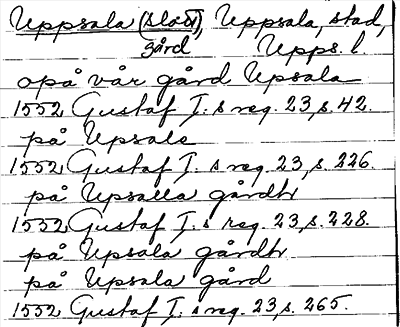 Uppsala (slott), Uppsala, stad,
gård Upps. l.
opå vår gård Upsala
1552 Gustaf I:s reg. 23, s. 42.
på Upsale
1552 Gustaf I:s reg. 23, s. 226.
på Upsalla gårdh
1552 Gustaf I:s reg. 23, s. 228.
på Upsala gårdh
på Upsala gård
1552 Gustaf I:s reg. 23, s. 265.